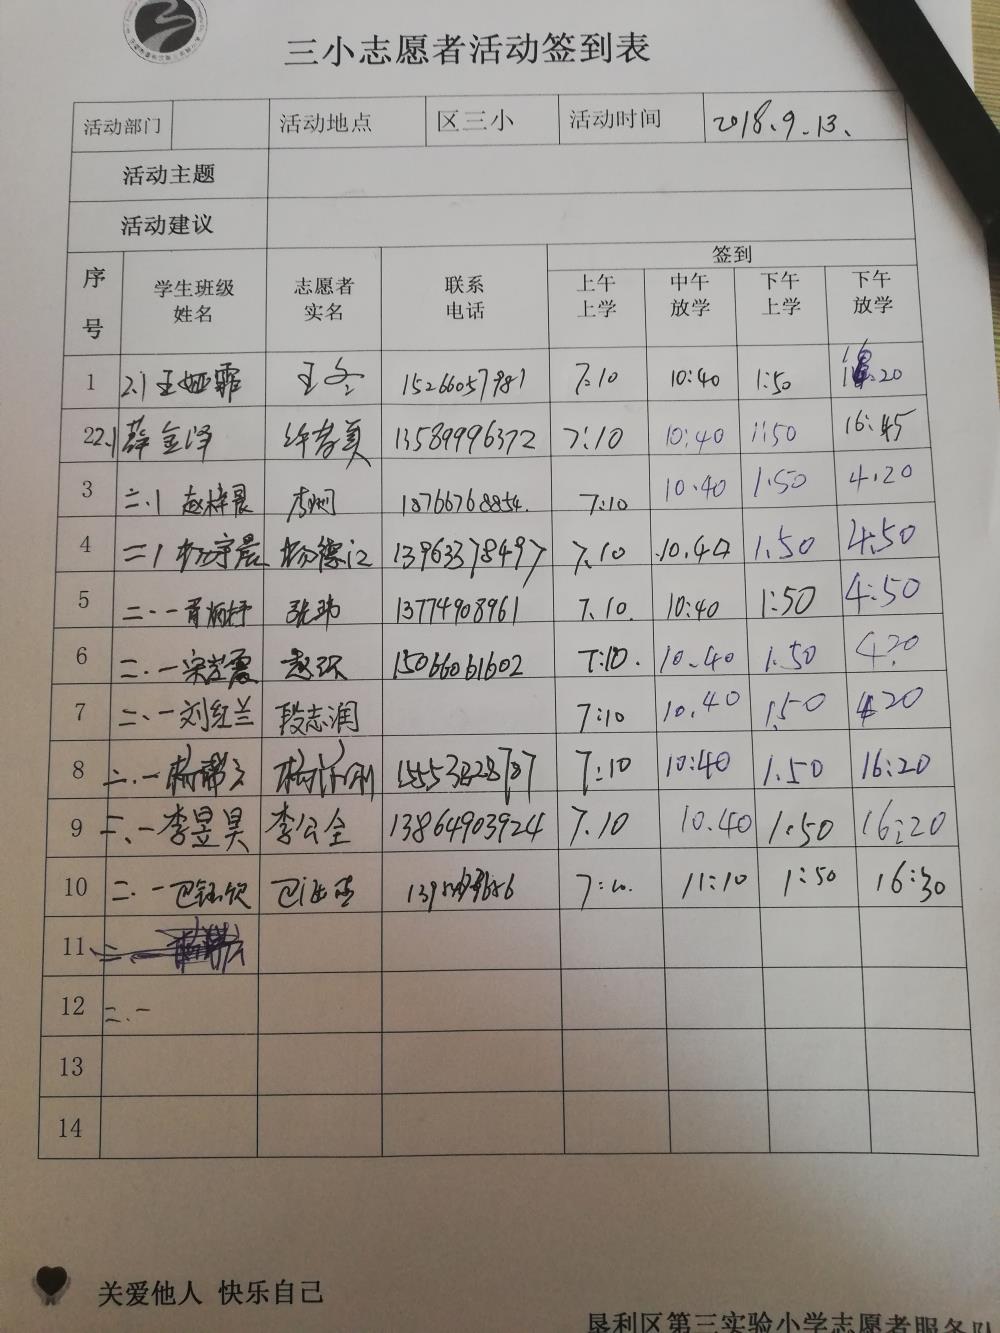 三小志愿者活动签到表
活动部门 活动地点 区三小 活动时间 2018.9.13.
活动主题
活动建议
序号 学生班级姓名 志愿者实名 联系电话 签到
上午上学 中午放学 下午上学 下午放学
1 2.1 王娅霏 王 15266057987 7:10 10:40 1:50 20
2 2.1 薛金泽 许春美 13589996372 7:10 10:40 1:50 16:45
3 二.1 赵梓晨 李 18766768854. 7:10 10.40 1.50 4.20
4 二1 杨宇晨 杨德江 13963378497 7.10 10.40 1.50 4.50
5 二.一 张玮 13774908961 7.10. 10:40 1:50 4:50
6 二.一宋 震 赵环 15066061602 7:10. 10.40 1.50 4.20
7 二.一刘红兰 段志润 7:10 10.40 1.50 4 20
8 二.一杨 杨 刚 7:10 10:40 1.50 16:20
9 二.一李昱昊 李公全 13864903924 7.10 10.40 1.50 16:20
10 二.一巴钰钦 巴 7: 11:10 1:50 16:30
11 二
12 二.一
13
14
关爱他人 快乐自己
垦利区第三实验小学志愿者服务队